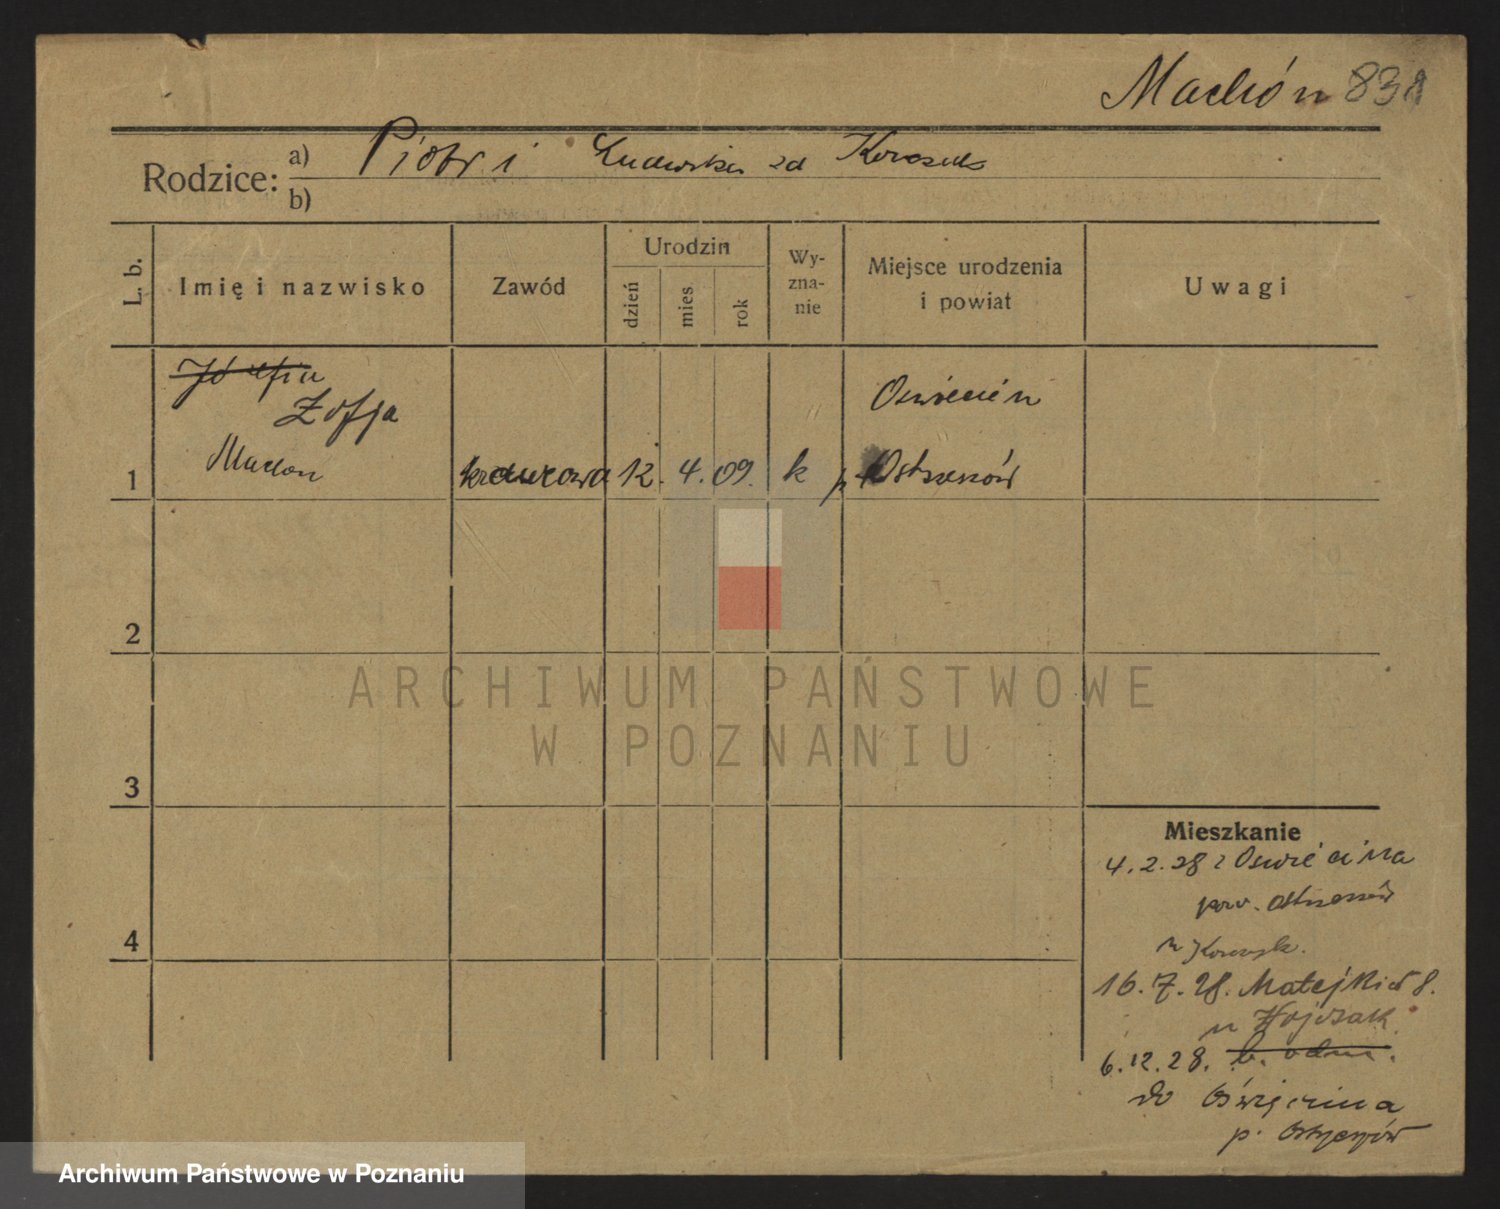 Machón 838
Rodzice: a) Piotr i Ludwika zd Korczak
b)
L. b.
Imię i nazwisko
Zawód
Urodzin
dzień
mies
rok
Wy-
zna-
nie
Miejsce urodzenia
i powiat
Uwagi
Józefin
Zofja
Oswiecin
1 Machon krawcowa 12. 4. 09. k p. Ostrzeszów
2
ARCHIWUM PAŃSTWOWE
W POZNANIU
3
Mieszkanie
4.2.28 z Oswiecina
pow. Ostrzeszów
4
u
16.7.28. Matejki 8.
u Wojczak
6.12.28. b. odm.
do Oświęcina
p. Ostrzeszów
Archiwum Państwowe w Poznaniu